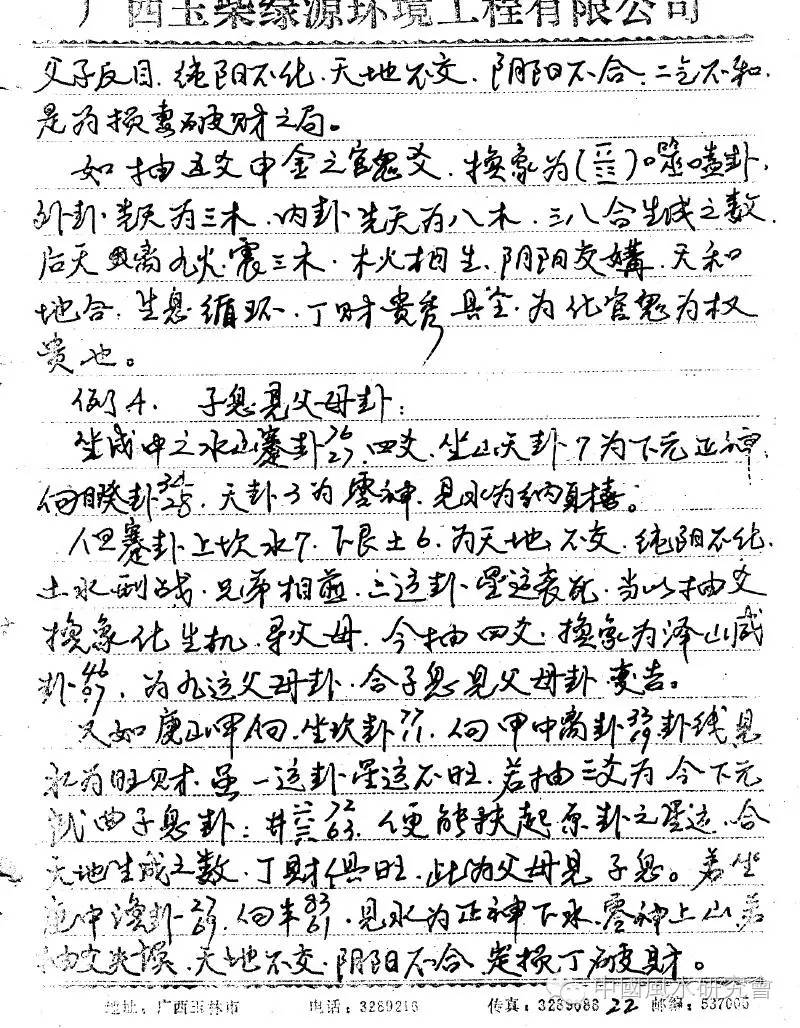 广西玉柴绿源环境工程有限公司
父子反目、纯阳不化、天地不交、阴阳不合、二气不和,
是为损妻破财之局。
如抽五爻申金之官鬼爻,换象为()噬嗑卦,
外卦先天为三木,内卦先天为八木,三八合生成之数,
后天离九火震三木,木火相生、阴阳交媾,天和
地合,生息循环,丁财贵秀具全,为化官鬼为权
贵也。
例4. 子息见父母卦:
坐戌中之水山蹇卦 76 27,四爻,坐山天卦7为下元正神,
向睽卦 34 28,天卦3为零神,见水为纳真禧。
但蹇卦上坎水7,下艮土6,为天地不交,纯阳不化,
土水刑战,兄弟相煎,二运卦星运衰死,当以抽爻
换象化生机,寻父母,今抽四爻,换象为泽山咸
卦 46 97,为九运父母卦,合子息见父母卦变吉。
又如庚山甲向,坐坎卦 77 11,向甲中离卦 33 19,卦线见
水为旺财,虽一运卦星运不旺,若抽三爻为今下元
武曲子息卦:井 72 63,便能扶起原卦之星运,合
天地生成之数,丁财俱旺,此为父母见子息。若坐
中涣卦 69,向丰 83 61,见水为正神下水,零神上山,若
抽爻失误,天地不交,阴阳不合,定损丁破财。
地址:广西玉林市 电话:3289216 传真:3289688 22 邮编:537005
中國風水研究會